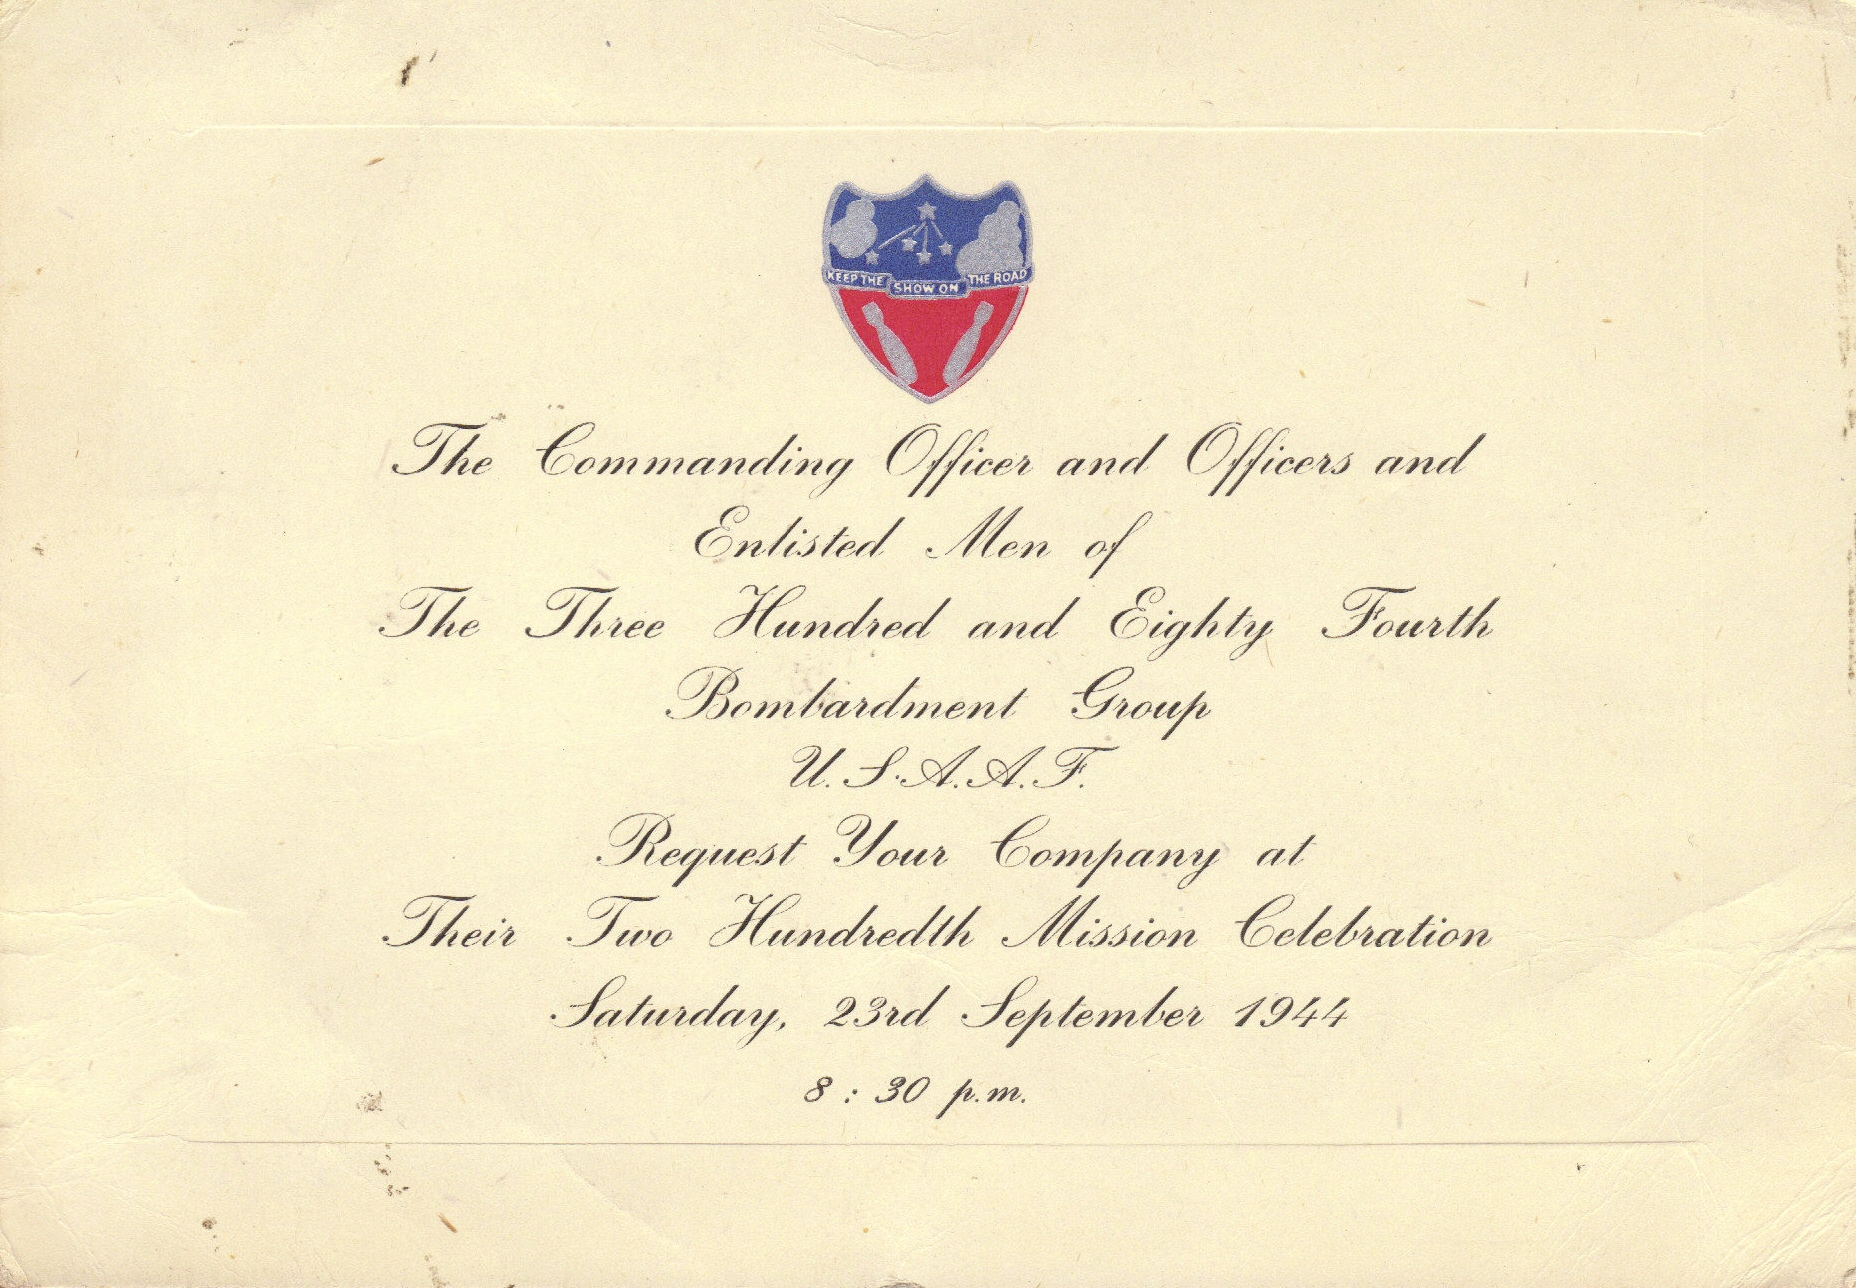 KEEP THE SHOW ON THE ROAD
The Commanding Officer and Officers and
Enlisted Men of
The Three Hundred and Eighty Fourth
Bombardment Group
U.S.A.A.F.
Request Your Company at
Their Two Hundredth Mission Celebration
Saturday, 23rd September 1944
8 : 30 p.m.